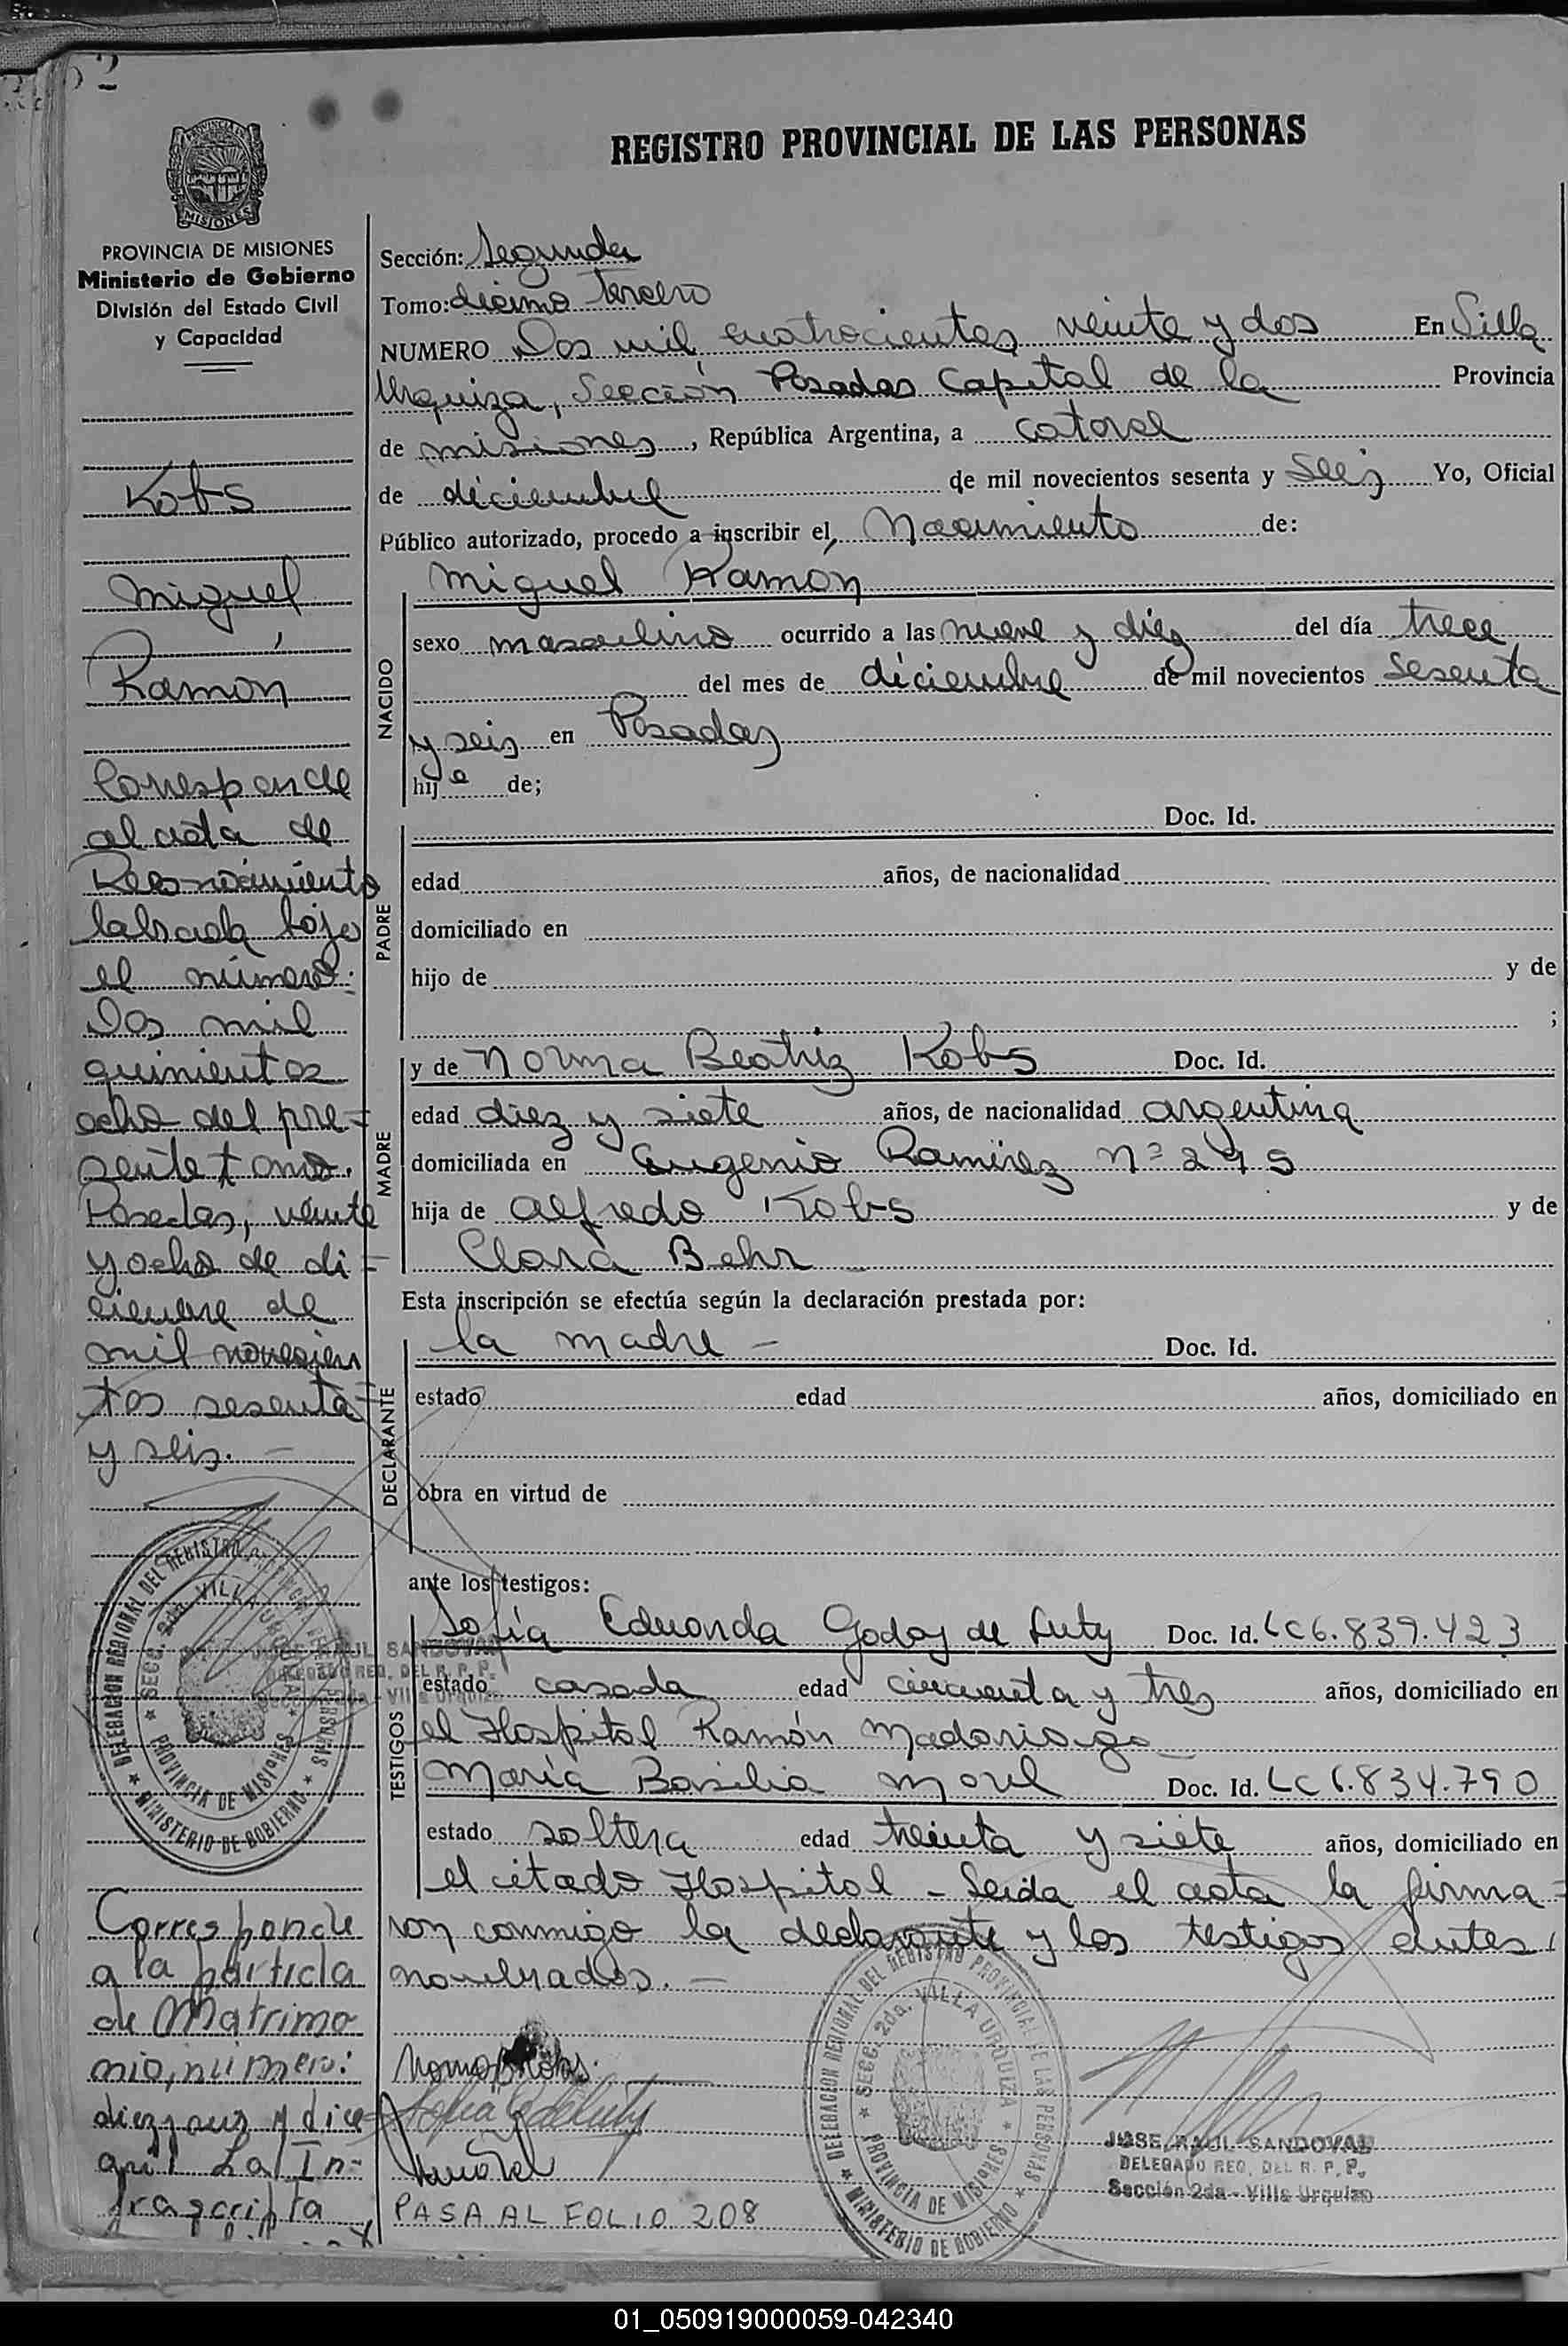 2
REGISTRO PROVINCIAL DE LAS PERSONAS
PROVINCIA DE MISIONES
Ministerio de Gobierno
División del Estado Civil
y Capacidad
Kobs
Miguel
Ramón
Corresponde
al acta de
Reconocimiento
labrada bajo
el número:
Dos mil
quinientos
ocho del pre=
sente tomo.
Posadas, veinte
y ocho de di=
ciembre de
mil novecien
tos sesenta=
y seis.-
DELEGACION REGIONAL DEL REGISTRO PROVINCIAL DE LAS PERSONAS
SECC. 2da. VILLA URQUIZA
PROVINCIA DE MISIONES
MINISTERIO DE GOBIERNO
JOSE RAUL SANDOVAL
DELEGADO REG. DEL R. P. P.
Sección 2da - Villa Urquiza
Corresponde
a la partida
de Matrimo
nio, número:
La In-
frascripta
Sección: Segunda
Tomo: décimo tercero
NUMERO Dos mil cuatrocientos veinte y dos En Villa
Urquiza, Sección Posadas Capital de la Provincia
de misiones, República Argentina, a catorce
de diciembre de mil novecientos sesenta y seis Yo, Oficial
Público autorizado, procedo a inscribir el, Nacimiento de:
Miguel Ramón
NACIDO
sexo masculino ocurrido a las nueve y diez del día trece
del mes de diciembre de mil novecientos sesenta
y seis en Posadas
hijo de;
PADRE
Doc. Id.
edad años, de nacionalidad
domiciliado en
hijo de y de
;
MADRE
y de Norma Beatriz Kobs Doc. Id.
edad diez y siete años, de nacionalidad argentina
domiciliada en Eugenio Ramírez nº 295
hija de Alfredo Kobs y de
Clara Behr
Esta inscripción se efectúa según la declaración prestada por:
DECLARANTE
la madre - Doc. Id.
estado edad años, domiciliado en
obra en virtud de
ante los testigos:
TESTIGOS
Sofía Eduarda Godoy de Luty Doc. Id. LC 6.839.423
estado casada edad cincuenta y tres años, domiciliado en
el Hospital Ramón Madariaga
María Basilia Morel Doc. Id. LC 6.834.790
estado soltera edad treinta y siete años, domiciliado en
el citado Hospital - Leida el acta la firma=
ron conmigo la declarante y los testigos antes
nombrados.-
PASA AL FOLIO 208
DELEGACION REGIONAL DEL REGISTRO PROVINCIAL DE LAS PERSONAS
SECC. 2da. VILLA URQUIZA
PROVINCIA DE MISIONES
MINISTERIO DE GOBIERNO
JOSE RAUL SANDOVAL
DELEGADO REG. DEL R. P. P.
Sección 2da - Villa Urquiza
01_050919000059-042340